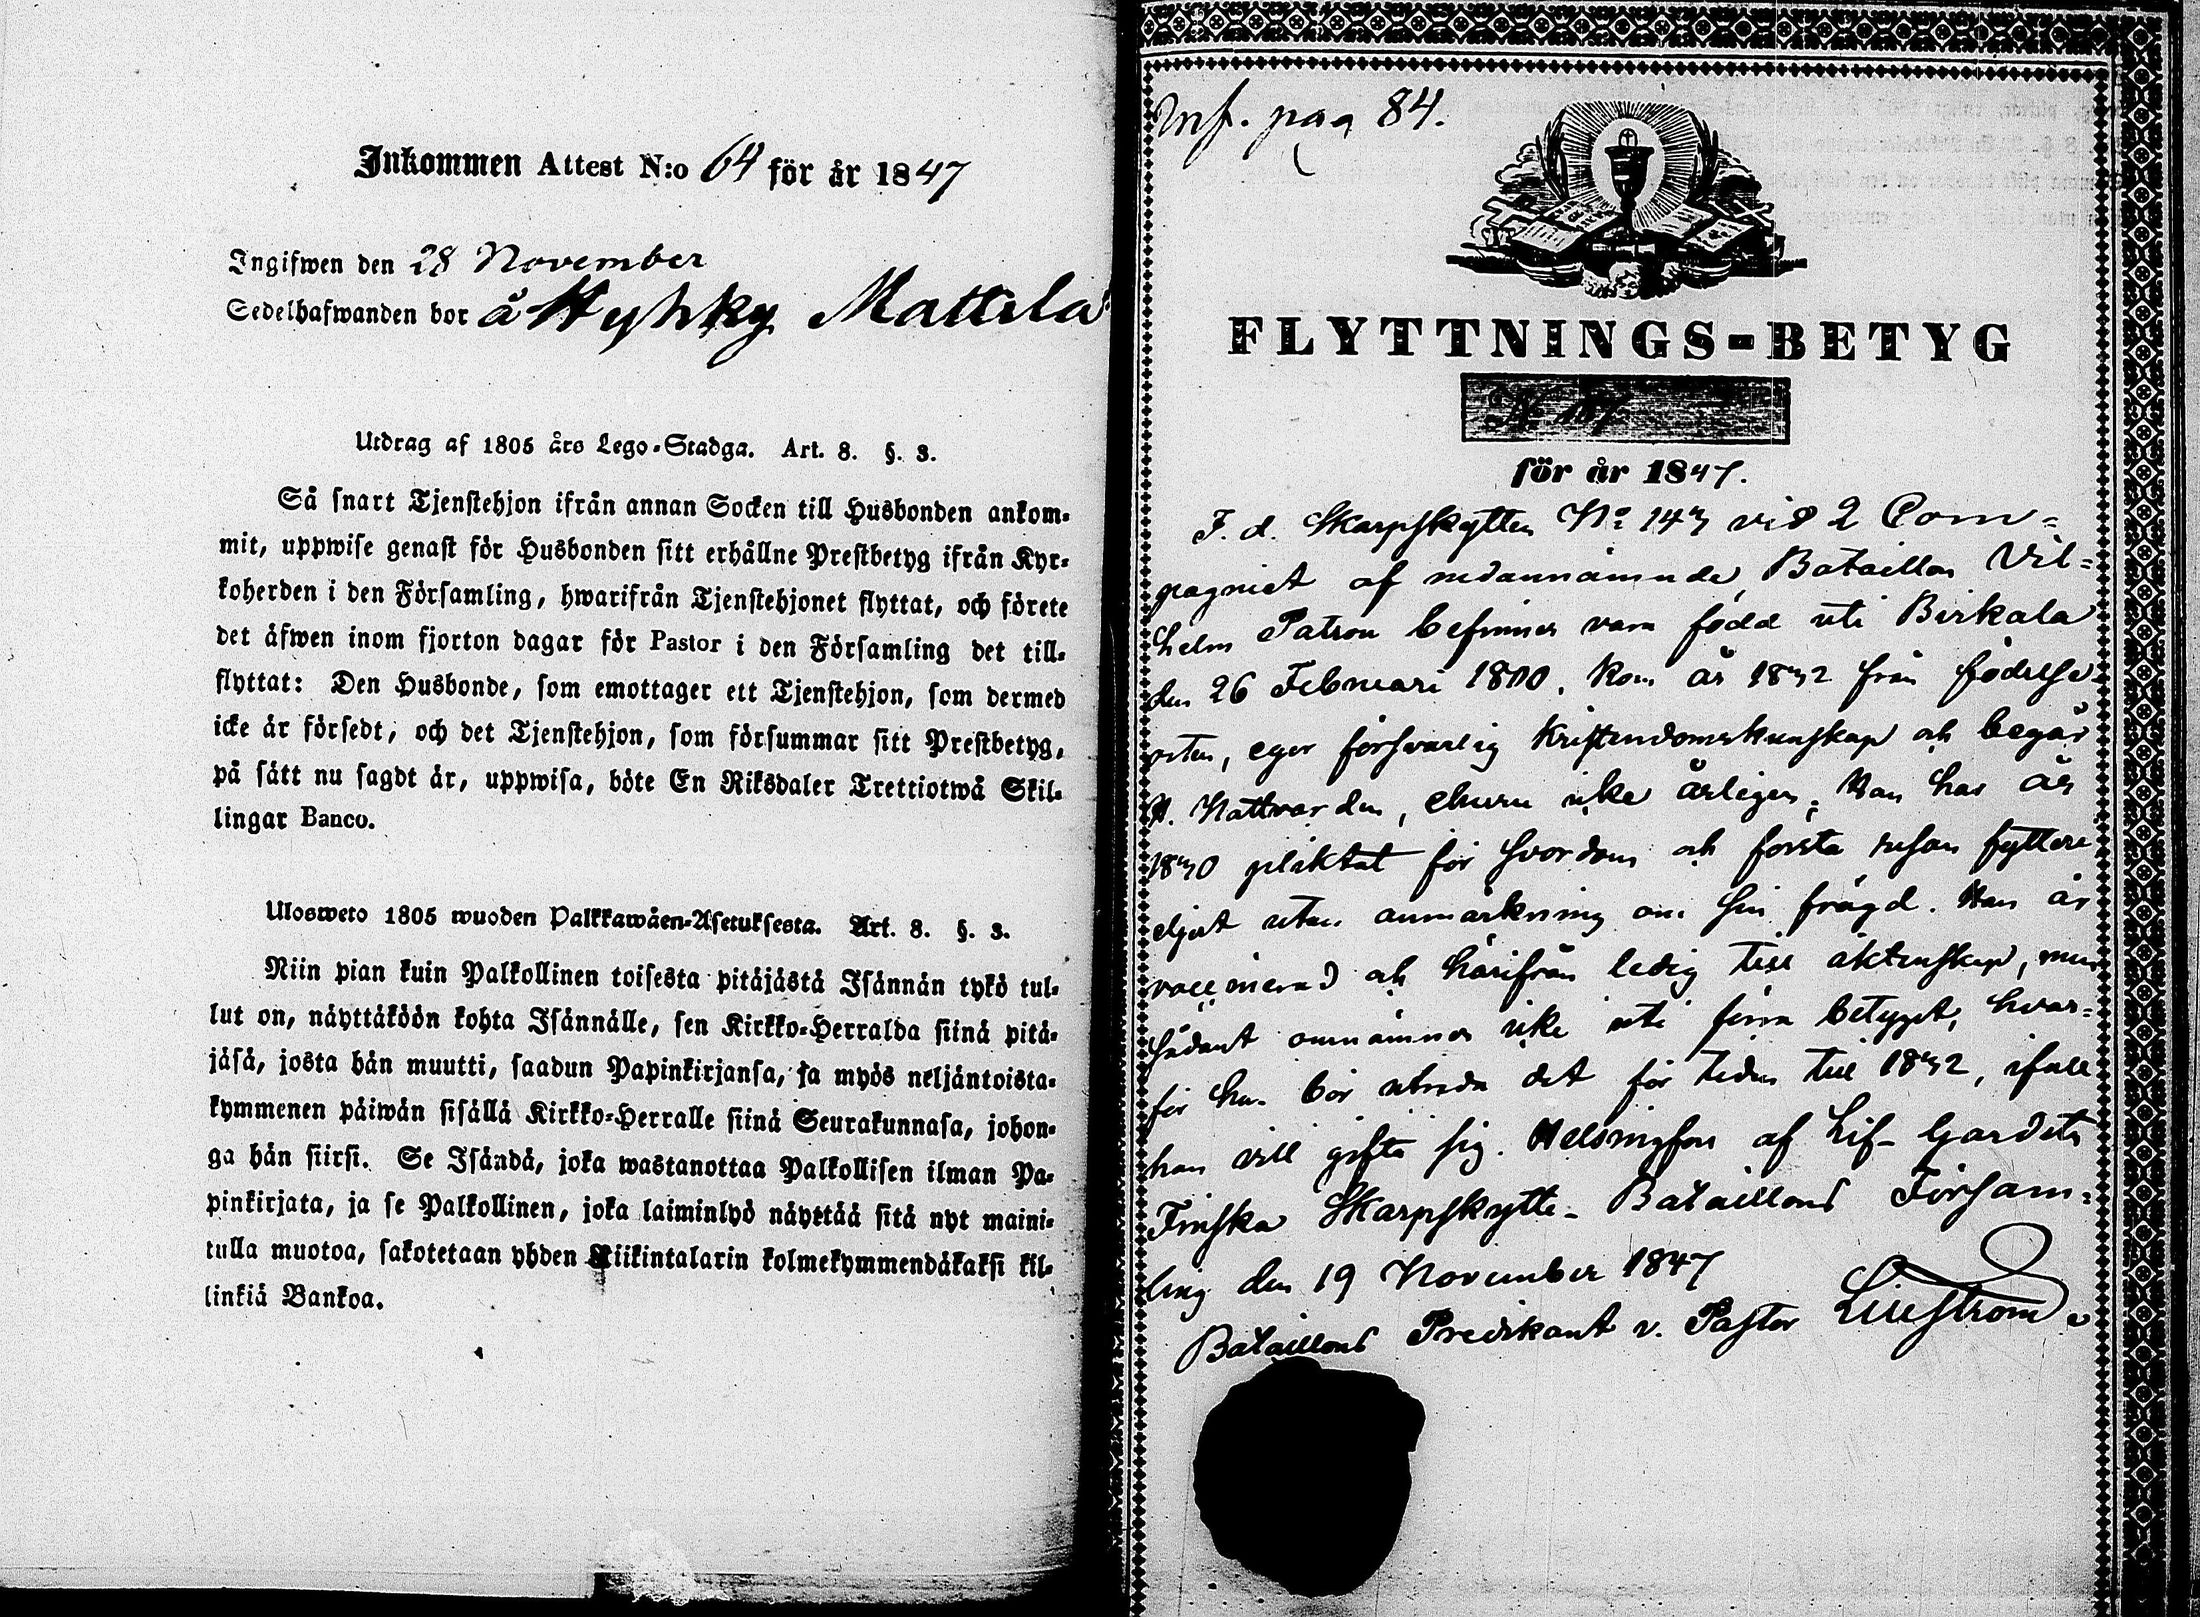 Inkommen Attest N:o 64 för år 1847
Ingifwen den 28 November
Sedelhafwanden bor å Hyhky Mattila
Utdrag af 1805 års Lego-Stadga. Art. 8. §. 3.
Så snart Tjenstehjon ifrån annan Socken till Husbonden ankom-
mit, uppwise genast för Husbonden sitt erhållne Prestbetyg ifrån Kyr-
koherden i den Församling, hwarifrån Tjenstehjonet flyttat, och förete
det äfwen inom fjorton dagar för Pastor i den Församling det till-
flyttat: Den Husbonde, som emottager ett Tjenstehjon, som dermed
icke är försedt, och det Tjenstehjon, som försummar sitt Prestbetyg,
på sätt nu sagdt är, uppwisa, böte En Riksdaler Trettiotwå Skil-
lingar Banco.
Ulosweto 1805 wuoden Palkkawäen-Asetuksesta. Art. 8. §. 3.
Niin pian kuin Palkollinen toisesta pitäjästä Isännän tykö tul-
lut on, näyttäköön kohta Isännälle, sen Kirkko-Herralda siinä pitä-
jäsä, josta hän muutti, saadun Papinkirjansa, ja myös neljäntoista-
kymmenen päiwän sisällä Kirkko-Herralle siinä Seurakunnasa, johon-
ga hän siirsi. Se Isändä, joka wastanottaa Palkollisen ilman Pa-
pinkirjata, ja se Palkollinen, joka laiminlyö näyttää sitä nyt maini-
tulla muotoa, sakotetaan yhden Riikintalarin kolmekymmendäkaksi kil-
linkiä Bankoa.
Inf. pag 84.
FLYTTNINGS-BETYG
N
för år 1847.
F. d. Skarpskytten No 147 vid 2 Com=
pagniet af nedannämnde Bataillon Vil=
helm Patron befinnes vara född uti Birkala
den 26 Februari 1800, kom år 1832 från födelse
orten, eger försvarlig Kristendomskunskap och begår
H. Nattvarden, ehuru icke årligen; Han har år
1830 pliktat för svordom och första resan fylleri
eljest utan anmärkning om sin frägd. Han är
vaccinerad och härifrån ledig till äktenskap, men
sådant omnämnes icke uti förra betyget, hvar=
för han bör utreda det för tiden till 1832, ifall
han vill gifta sig. Helsingfors af Lif-Gardets
Finska Skarpskytte-Bataillons Försam=
ling den 19 November 1847
Bataillons Predikant v. Pastor Liljeström